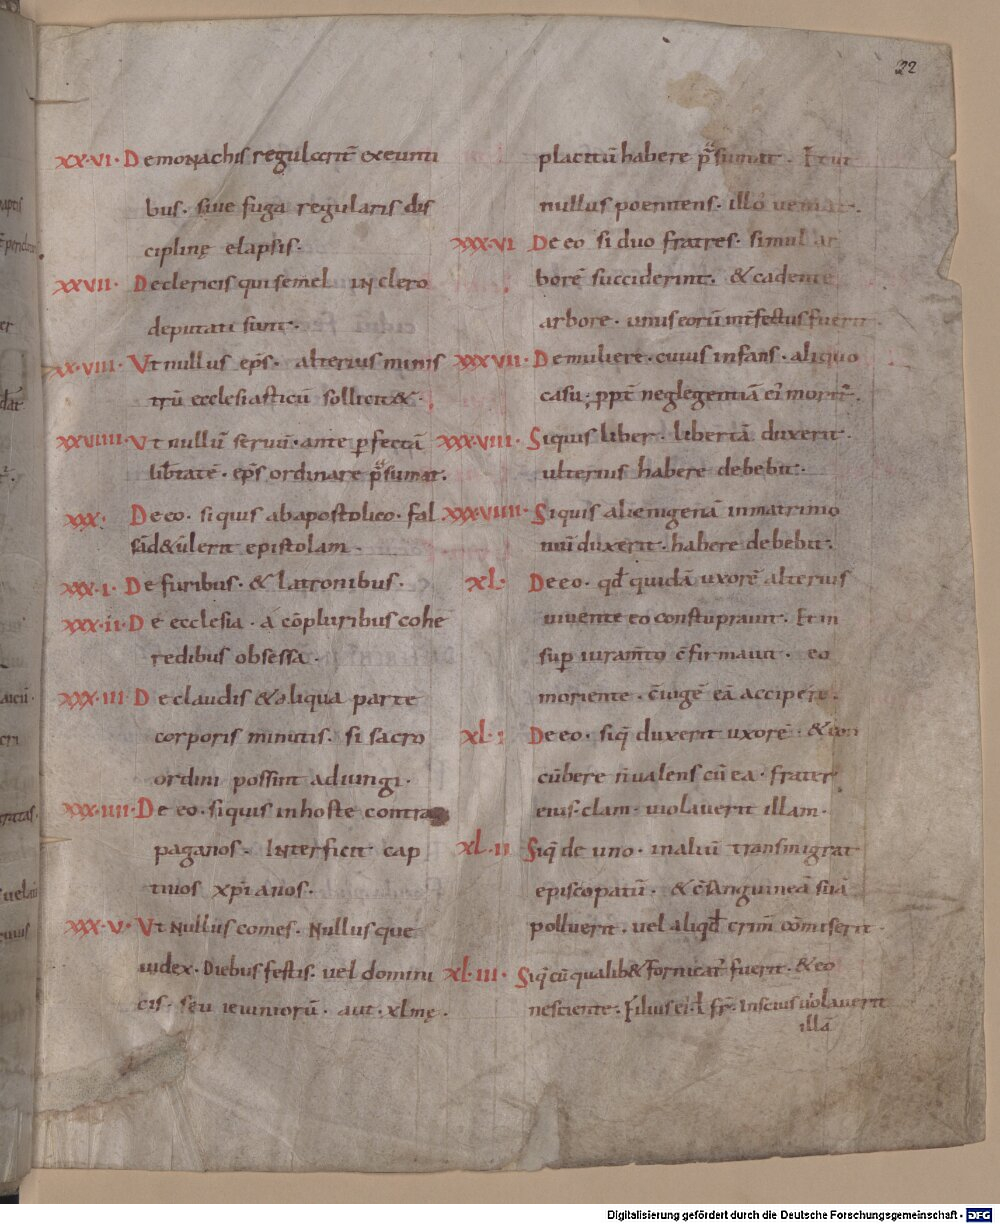 22
XX·VI· Demonachis regulariť exeunti
bus· siue fuga regularis dis
ciplinę elapsis·
XXVII· Declericis qui semel in clero
deputati sunt·
XX·VIII· Ut nullus ep̄s· alterius minis
trū ecclesiasticū sollicit&·
XXVIIII· Ut nullū seruū· ante ꝑfectā
lib̄tatē· ep̄s ordinare p̄sumat·
XXX· De eo· siquis abapostolico· fal
sād&ulerit epistolam·
XXX·I· De furibus· & latronibus·
XXX·II· De ecclesia· a cōpluribus cohe
redibus obsessa·
XXX·III· De claudis & aliqua parte
corporis minutis· si sacro
ordini possint adiungi·
XXX·IIII· De eo· siquis in hoste contra
paganos· Interficit cap
tiuos xp̄ianos·
XXX·V· Ut Nullus comes· Nullus que
iudex· Diebus festis· uel domini
cis· seu ieiuniorū· aut· xlmę·
placitū habere p̄sumat· Et ut
nullus poenitens· illo ueniat·
XXX·VI De eo si duo fratres· simul ar
borē succiderint· & cadente
arbore· unus eorū int̄fectus fuerit·
XXXVII· De muliere· cuius infans· aliquo
casu· ꝓpť neglegentiā ei᾽ moriť·
XXX·VIII· Siquis liber· libertā duxerit·
ulterius habere debebit·
XXX·VIIII· Siquis alienigenā inmatrimo
niū duxerit· habere debebit·
XL· De eo· qđ quidā uxorē alterius
uiuente eo constuprauit· Et in
suꝑ iuram̄to c̄firmauit· eo
moriente· c̄iugē eā accipere·
XL·I De eo· siq̄ duxerit uxorē· & con
cūbere n̄ ualens cū ea· frater
eius· clam· uiolauerit illam·
XL·II Siq̄ de uno· in aliū transmigrat
episcopatū· & c̄sanguineā suā
polluerit· uel aliqđ crim̄ cōmiserit·
XL·III· Siq̄ cū qualib& fornicať fuerit· & eo
nesciente· Filius ei᾽ ł fr̄· Inscius uiolauerit
illā
Digitalisierung gefördert durch die Deutsche Forschungsgemeinschaft - DFG